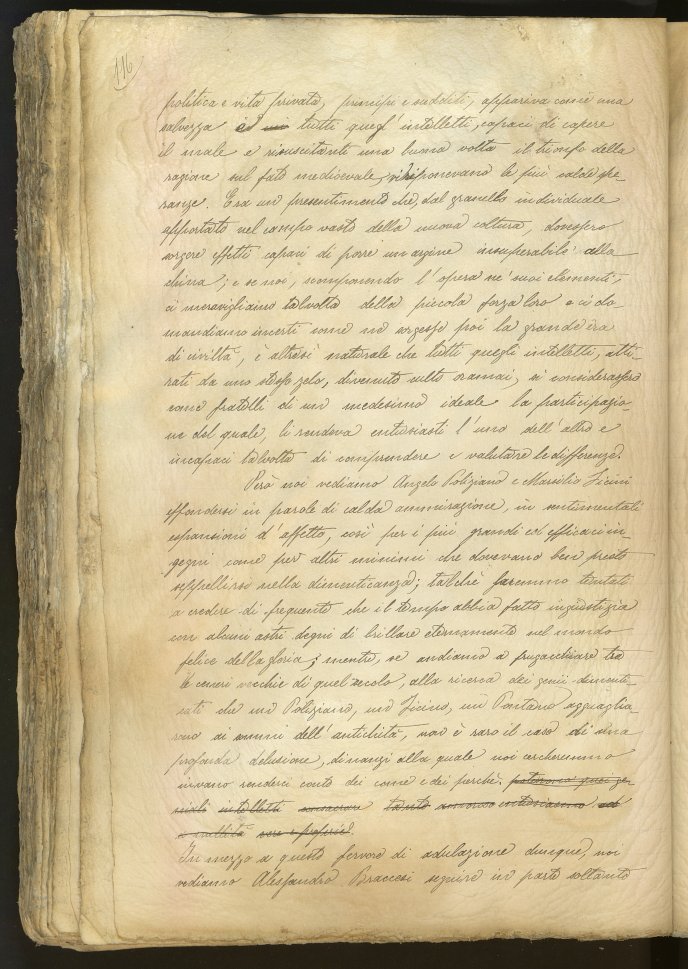 116
politica e vita privata, principi e sudditi, appariva come una
salvezza ed tutti quegl'intelletti, capaci di capire
il male e risuscitanti una buona volta il trionfo della
ragione sul fato medioevale, riponevano le più calde spe-
ranze. Era un presentimento che, dal granello individuale
apportato nel campo vasto della nuova coltura, dovessero
sorgere effetti capaci di porre un argine insuperabile alla
china; e se noi, scomponendo l'opera ne' suoi elementi,
ci meravigliamo talvolta della piccola forza loro e ci do
mandiamo incerti come ne sorgesse poi la grande èra
di civiltà, è altresì naturale che tutti quegli intelletti, atti-
rati da uno stesso zelo, divenuto culto oramai, si considerassero
come fratelli di un medesimo ideale la participazio-
ne del quale, li rendeva entusiasti l'uno dell'altro e
incapaci talvolta di comprendere e valutare le differenze.
Però noi vediamo Angelo Poliziano e Marsilio Ficini
effondersi in parole di calda ammirazione, in sentimentali
espansioni d'affetto, così per i più grandi ed efficaci in-
gegni come per altri minimi che dovevano ben presto
seppellirsi nella dimenticanza; talchè saremmo tentati
a credere di frequente che il tempo abbia fatto ingiustizia
con alcuni astri degni di brillare eternamente nel mondo
felice della gloria; mentre, se andiamo a frugacchiare tra
le ceneri vecchie di quel secolo, alla ricerca dei genii dimenti-
cati che un Poliziano, un Ficino, un Pontano agguaglia-
rono ai sommi dell'antichità, non è raro il caso di una
profonda delusione, dinanzi alla quale noi cercheremmo
invano renderci conto dei come e dei perchè. potevano quei ge-
niali intelletti consacrare tanto
In mezzo a questo fervore di adulazione dunque, noi
vediamo Alessandro Braccesi seguire in parte soltanto